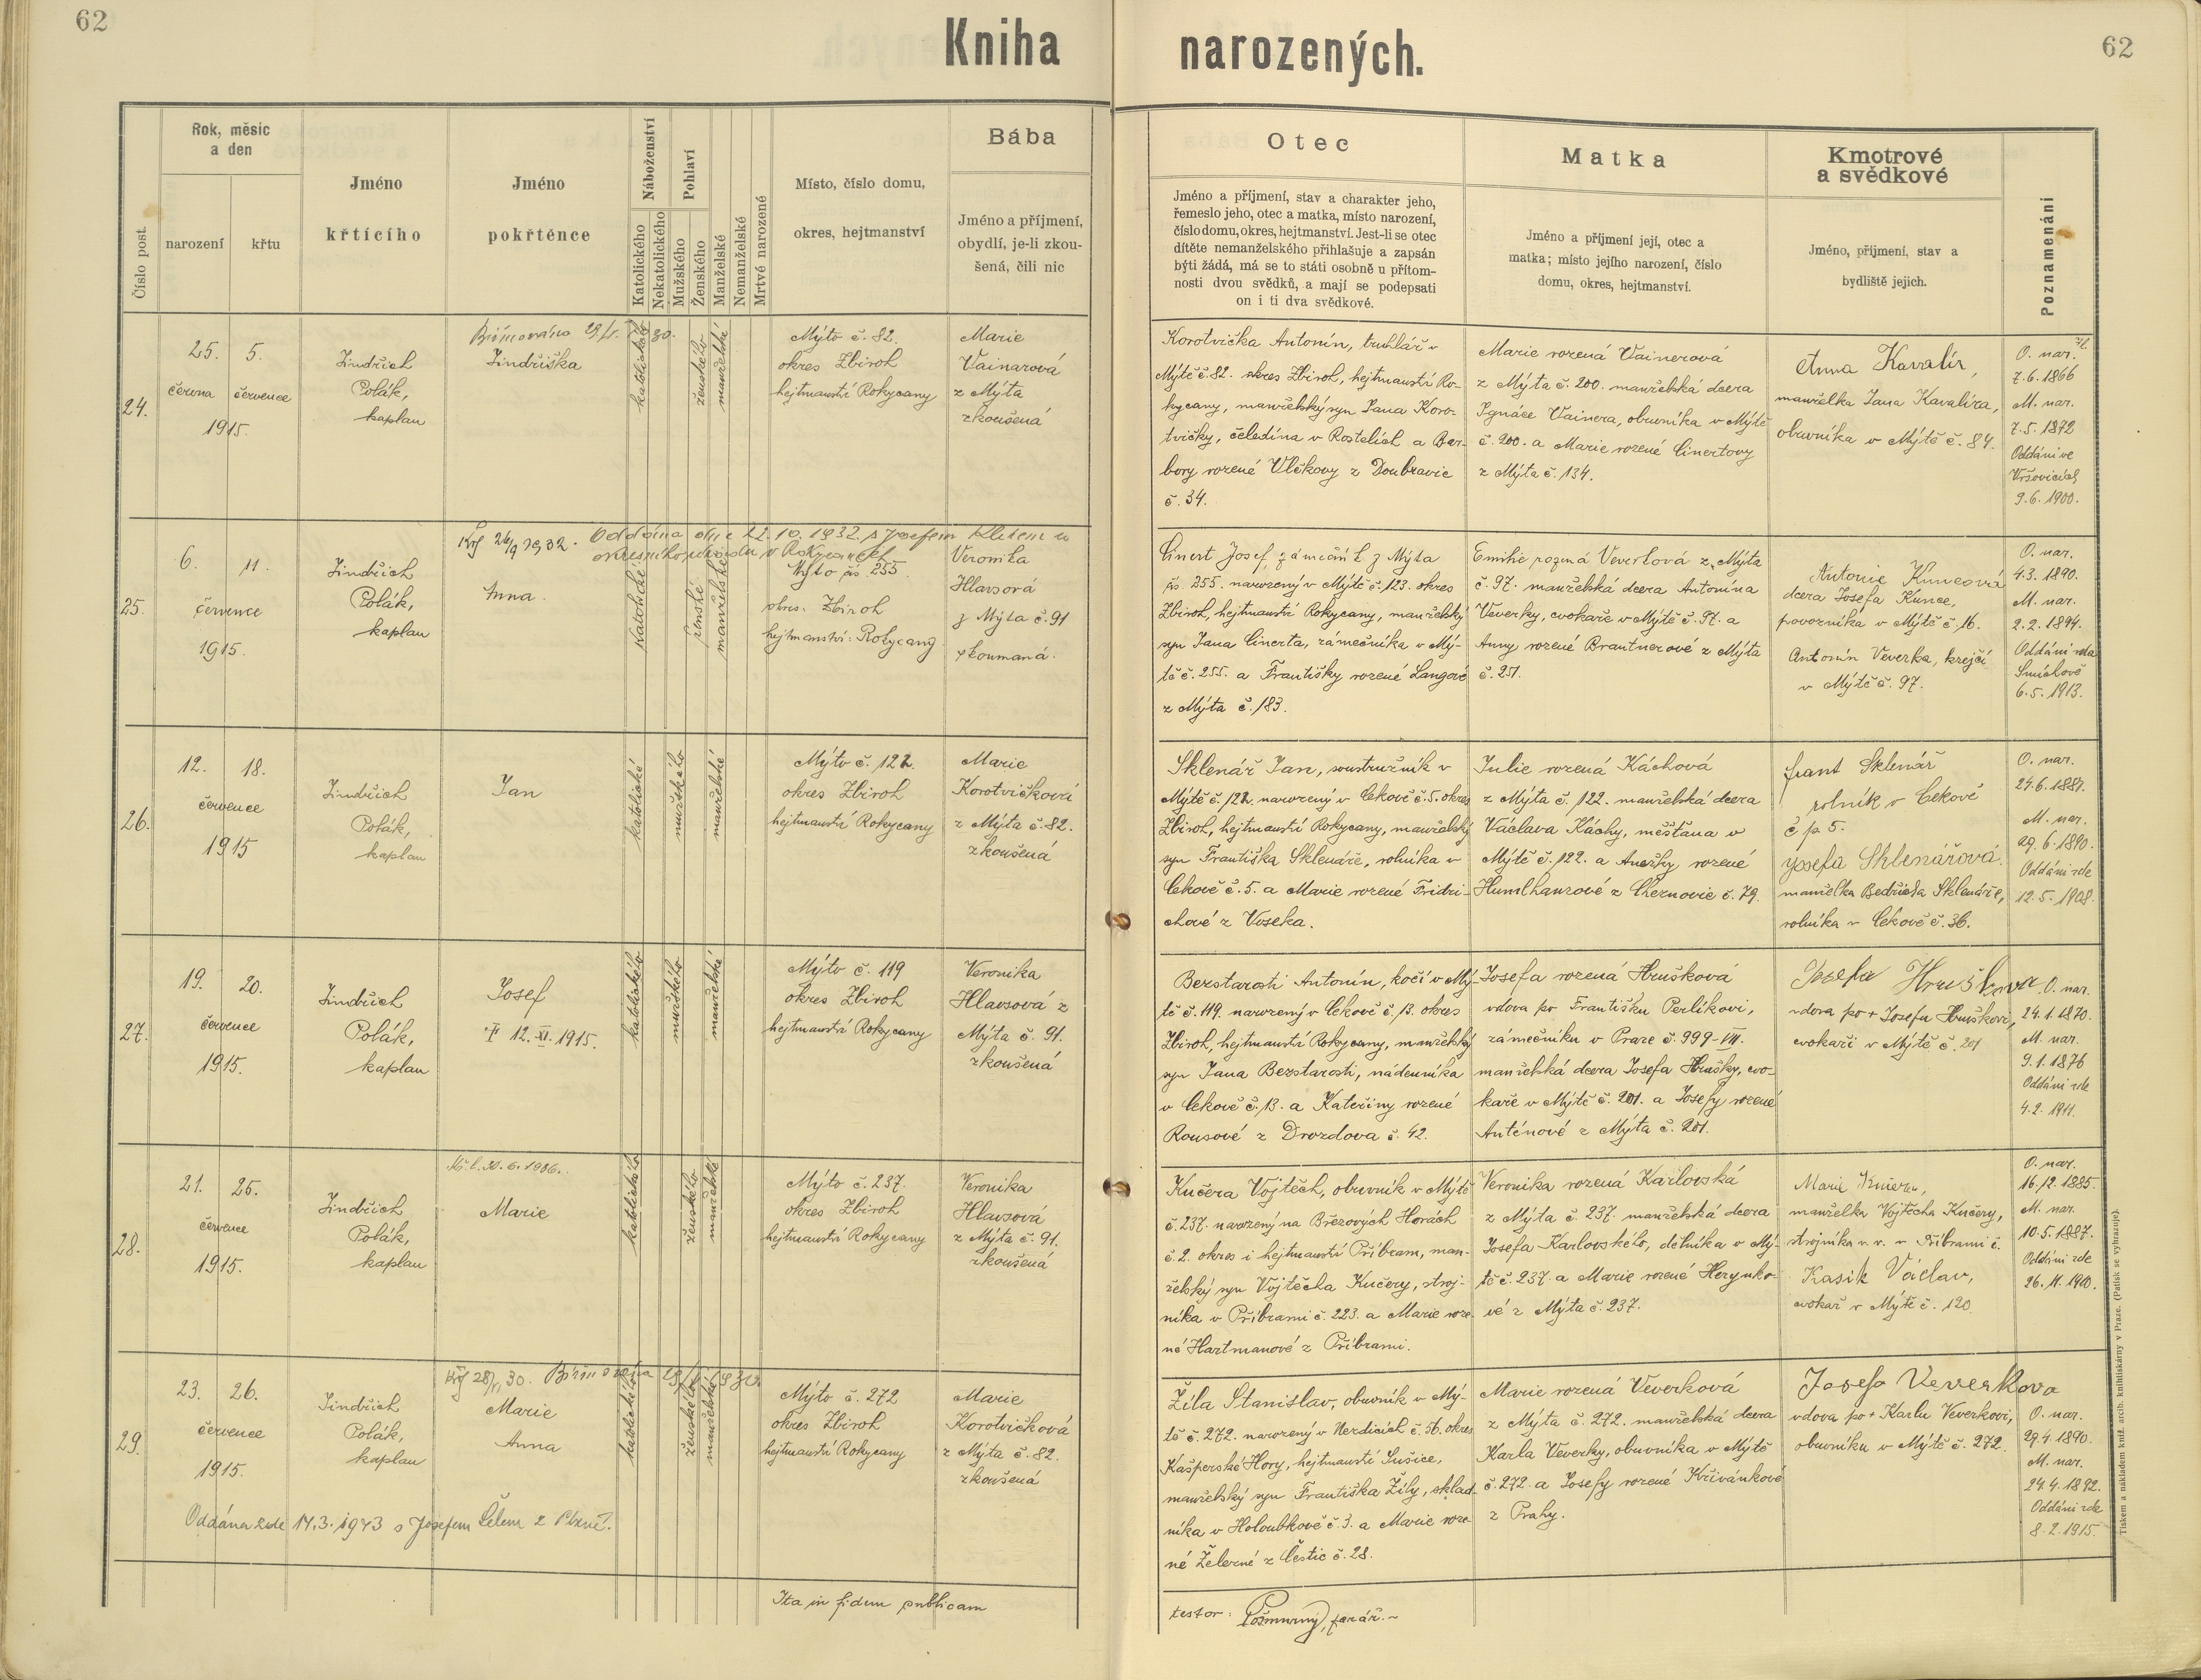 62
Kniha narozených.
62
Číslo post.
Rok, měsíc
a den
narození
křtu
Jméno
křtícího
Jméno
pokřtěnce
Náboženství
Katolického
Nekatolického
Pohlaví
Mužského
Ženského
Manželské
Nemanželské
Mrtvě narozené
Místo, číslo domu,
okres, hejtmanství
Bába
Jméno a příjmení,
obydlí, je-li zkou-
šená, čili nic
Otec
Jméno a příjmení, stav a charakter jeho,
řemeslo jeho, otec a matka, místo narození,
číslo domu, okres, hejtmanství. Jest-li se otec
dítěte nemanželského přihlašuje a zapsán
býti žádá, má se to státi osobně u přítom-
nosti dvou svědků, a mají se podepsati
on i ti dva svědkové.
Matka
Jméno a příjmení její, otec a
matka; místo jejího narození, číslo
domu, okres, hejtmanství.
Kmotrové
a svědkové
Jméno, příjmení, stav a
bydliště jejich.
Poznamenání
24.
25. 5.
června července
1915.
Jindřich
Polák,
kaplan
Biřmována
Jindřiška
katolického
ženského
manželské
Mýto č. 82.
okres Zbiroh
hejtmanství Rokycany
Marie
Vainarová
z Mýta
zkoušená
Korotvička Antonín, truhlář v
Mýtě č. 82. okres Zbiroh, hejtmanství Ro-
kycany, manželský syn Jana Koro-
tvičky, čeledína v Rostelích a Bar-
bory rozené Vlčkovy z Doubravic
č. 34.
Marie rozená Vainerová
z Mýta č. 200. manželská dcera
Ignáce Vainera, obuvníka v Mýtě
č. 200. a Marie rozené Cinertovy
z Mýta č. 134.
Anna Kavalír,
manželka Jana Kavalíra,
obuvníka v Mýtě č. 84.
O. nar.
7.6.1866
M. nar.
7.5.1872
Oddáni ve
Vršovicích
9.6.1900.
25.
6. 11.
července
1915.
Jindřich
Polák,
kaplan
Oddána dne 22.10.1932 s Josefem
Anna.
katolické
ženské
manželské
Mýto čís. 255
okres: Zbiroh
hejtmanství: Rokycany
Veronika
Hlavsová
z Mýta č. 91
zkoumaná.
Cinert Josef, zámečník z Mýta
čís. 255. narozený v Mýtě č. 123. okres
Zbiroh, hejtmanství Rokycany, manželský
syn Jana Cinerta, zámečníka v Mý-
tě č. 255. a Františky rozené Langové
z Mýta č. 183.
Emilie rozená Veverková z Mýta
č. 97. manželská dcera Antonína
Veverky, cvokaře v Mýtě č. 97. a
Anny rozené Brantnerové z Mýta
č. 251.
Antonie Kuncová
dcera Josefa Kunce,
provozníka v Mýtě č. 16.
Antonín Veverka, krejčí
v Mýtě č. 97.
O. nar.
4.3.1890.
M. nar.
2.2.1894.
Oddáni na
Smíchově
6.5.1913.
26.
12. 18.
července
1915
Jindřich
Polák,
kaplan
Jan
katolické
mužského
manželské
Mýto č. 122.
okres Zbiroh
hejtmanství Rokycany
Marie
Korotvičková
z Mýta č. 82.
zkoušená
Sklenář Jan, soustružník v
Mýtě č. 122. narozený v Cekově č. 5. okres
Zbiroh, hejtmanství Rokycany, manželský
syn Františka Sklenáře, rolníka v
Cekově č. 5. a Marie rozené Fridri-
chové z Voseka.
Julie rozená Káchová
z Mýta č. 122. manželská dcera
Václava Káchy, měšťana v
Mýtě č. 122. a Anežky rozené
Humlhanzové z Cheznovic č. 79.
Frant Sklenář
rolník v Cekově
č p 5.
Josefa Sklenářová.
manželka Bedřicha Sklenáře,
rolníka v Cekově č. 36.
O. nar.
24.6.1887.
M. nar.
29.6.1890.
Oddáni zde
12.5.1908.
27.
19. 20.
července
1915.
Jindřich
Polák,
kaplan
Josef
† 12. XI. 1915.
katolického
mužského
manželské
Mýto č. 119
okres Zbiroh
hejtmanství Rokycany
Veronika
Hlavsová z
Mýta č. 91.
zkoušená
Bezstarosti Antonín, kočí v Mý-
tě č. 119. narozený v Cekově č. 13. okres
Zbiroh, hejtmanství Rokycany, manželský
syn Jana Bezstarosti, nádenníka
v Cekově č. 13. a Kateřiny rozené
Rousové z Drozdova č. 42.
Josefa rozená Hrušková
vdova po Františku Perlíkovi,
zámečníku v Praze č. 999-VII.
manželská dcera Josefa Hrušky, cvo-
kaře v Mýtě č. 201. a Josefy rozené
Anténové z Mýta č. 201.
Josefa Hruškova
vdova po † Josefu Hruškovi,
cvokaři v Mýtě č. 201
O. nar.
24.1.1870.
M. nar.
9.1.1876
Oddáni zde
4.2.1911.
28.
21. 25.
července
1915.
Jindřich
Polák,
kaplan
Kř. l. 30.6.1936.
Marie
katolického
ženského
manželské
Mýto č. 237.
okres Zbiroh
hejtmanství Rokycany
Veronika
Hlavsová
z Mýta č. 91.
zkoušená
Kučera Vojtěch, obuvník v Mýtě
č. 237. narozený na Březových Horách
č. 2. okres i hejtmanství Příbram, man-
želský syn Vojtěcha Kučery, stroj-
níka v Příbrami č. 223. a Marie roze-
né Hartmanové z Příbrami.
Veronika rozená Karlovská
z Mýta č. 237. manželská dcera
Josefa Karlovského, dělníka v Mý-
tě č. 237. a Marie rozené Herynko-
vé z Mýta č. 237.
Marie Kučera,
manželka Vojtěcha Kučery,
strojníka v. v. v Příbrami č.
Kasík Václav,
cvokař v Mýtě č. 120
O. nar.
16.12.1885.
M. nar.
10.5.1887.
Oddáni zde
26.11.1910.
29.
23. 26.
července
1915.
Jindřich
Polák,
kaplan
Biřmována
Marie
Anna
katolického
ženského
manželské
Mýto č. 272
okres Zbiroh
hejtmanství Rokycany
Marie
Korotvičková
z Mýta č. 82.
zkoušená
Žíla Stanislav, obuvník v Mý-
tě č. 272. narozený v Nezdicích č. 56. okres
Kašperské Hory, hejtmanství Sušice,
manželský syn Františka Žíly, sklad-
níka v Holoubkově č. 3. a Marie roze-
né Železné z Čestic č. 28.
Marie rozená Veverková
z Mýta č. 272. manželská dcera
Karla Veverky, obuvníka v Mýtě
č. 272. a Josefy rozené Křivánkové
z Prahy.
Josefa Veverkova
vdova po † Karlu Veverkovi,
obuvníku v Mýtě č. 272.
O. nar.
29.4.1890.
M. nar.
24.4.1892.
Oddáni zde
8.2.1915.
Oddána zde 14.3.1943 s Josefem Šelem z Plzně.
Ita in fidem publicam
testor: Pošmurný, farář.
Tiskem a nákladem kníž. arcib. knihtiskárny v Praze. (Patisk se vyhrazuje).